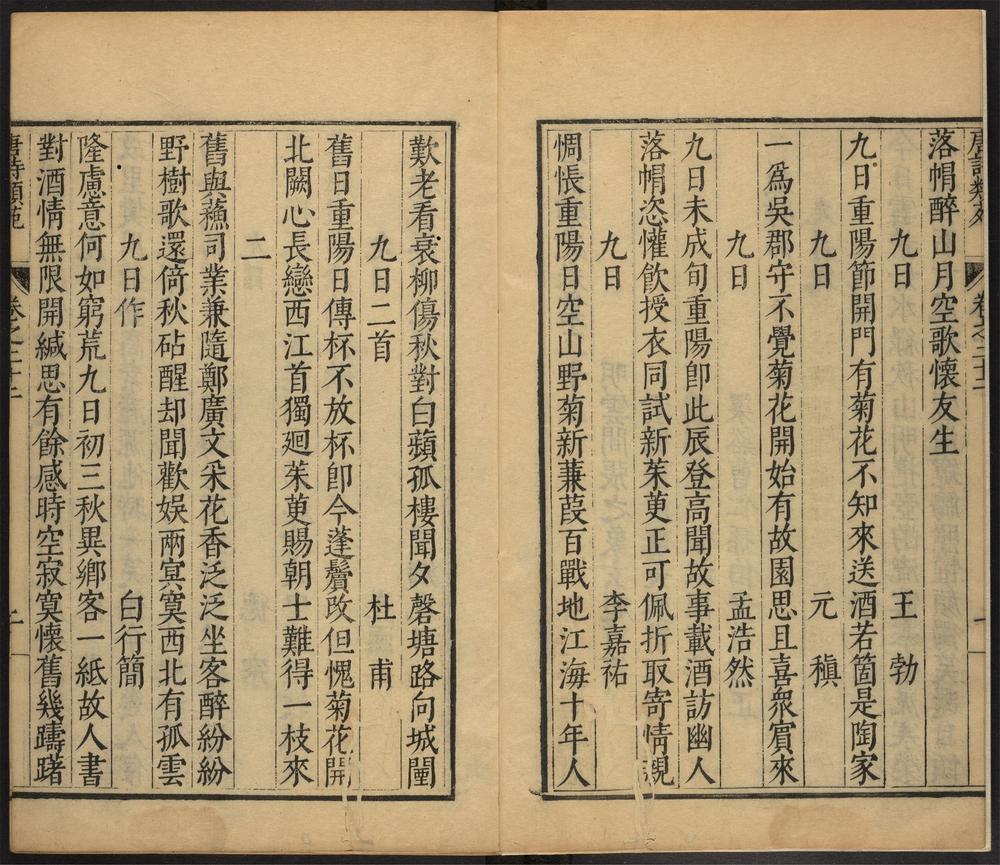 唐詩類苑 卷之二十二
落帽醉山月空歌懷友生
九日 王勃
九日重陽節開門有菊花不知來送酒若箇是陶家
九日 元稹
一爲吳郡守不覺菊花開始有故園思且喜衆賓來
九日 孟浩然
九日未成旬重陽卽此辰登高聞故事載酒訪幽人
落帽恣懽飲授衣同試新茱萸正可佩折取寄情親
九日 李嘉祐
惆悵重陽日空山野菊新蒹葭百戰地江海十年人
歎老看衰柳傷秋對白蘋孤樓聞夕磬塘路向城闉
九日二首 杜甫
舊日重陽日傳杯不放杯卽今蓬鬢改但愧菊花開
北闕心長戀西江首獨廻茱萸賜朝士難得一枝來
二
舊與蘓司業兼隨鄭廣文采花香泛泛坐客醉紛紛
野樹歌還倚秋砧醒却聞歡娛兩冥寞西北有孤雲
九日作 白行簡
隆慮意何如窮荒九日初三秋異鄉客一紙故人書
對酒情無限開緘思有餘感時空寂寞懷舊幾躊躇
唐詩類苑 卷之二十二 二